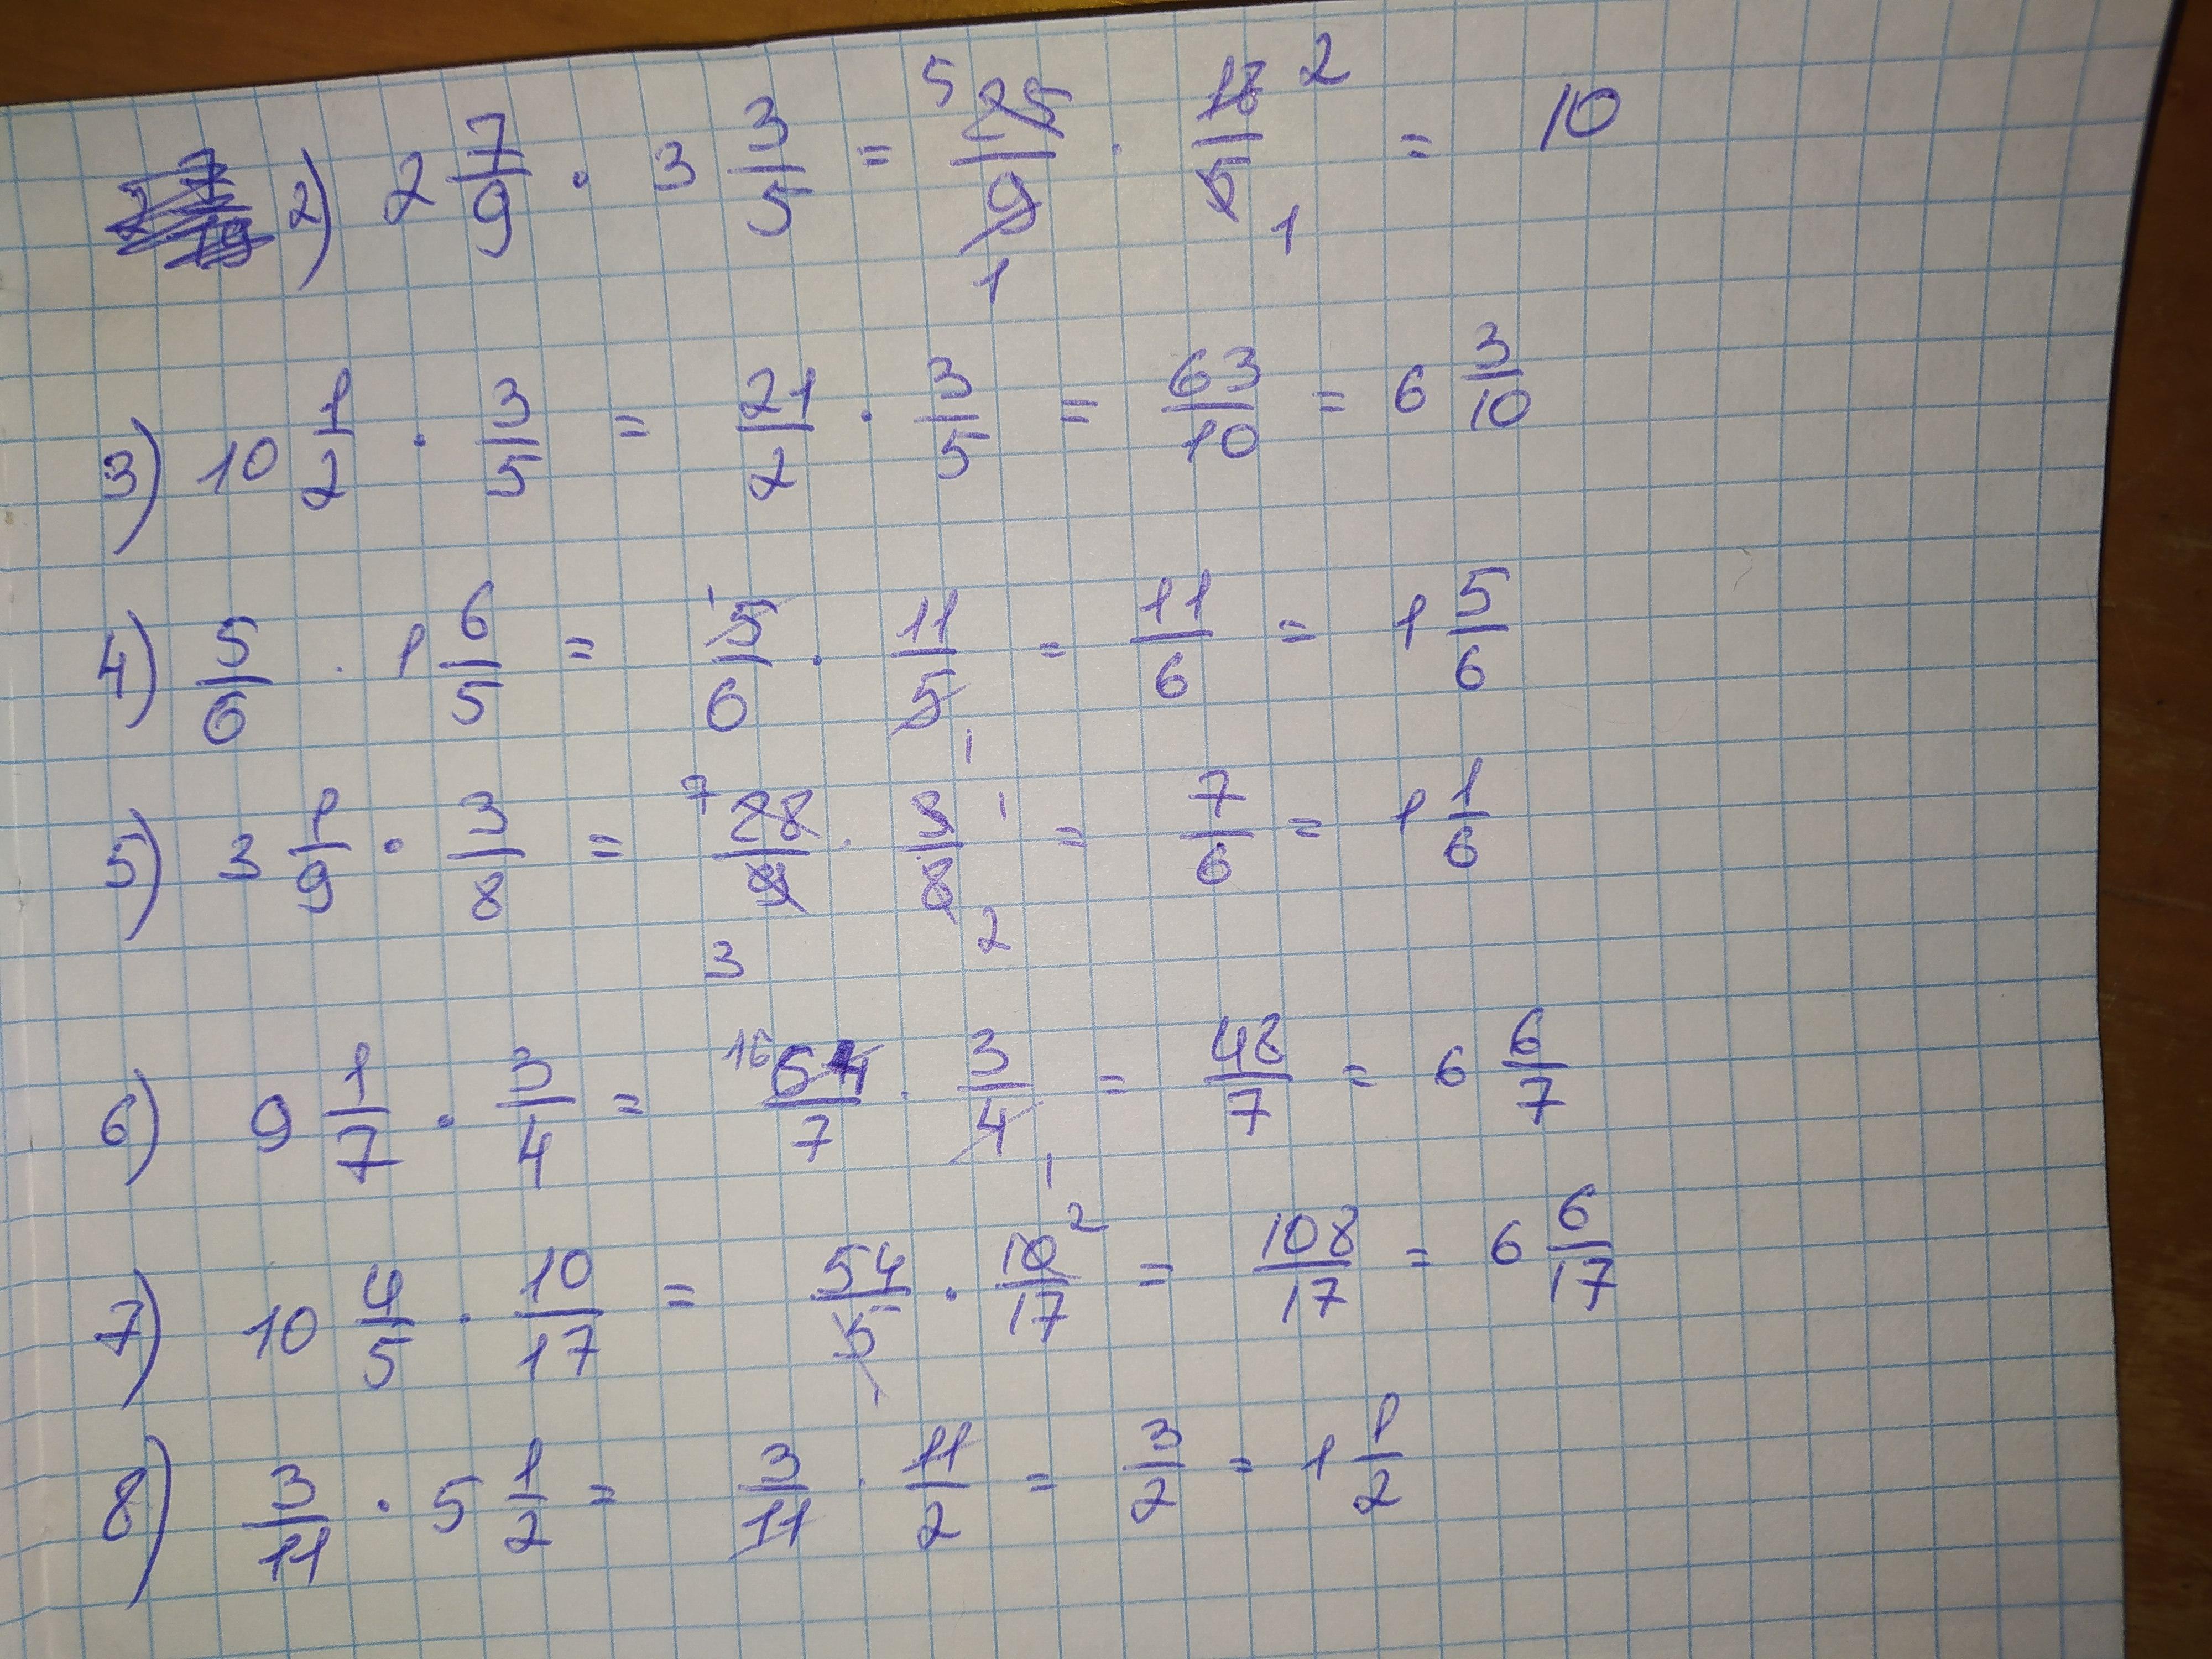 2) 2 7/9 · 3 3/5 = 5 25/9 1 · 18/5 2 1 = 10
3) 10 1/2 · 3/5 = 21/2 · 3/5 = 63/10 = 6 3/10
4) 5/6 · 1 6/5 = 1 5/6 · 11/5 1 = 11/6 = 1 5/6
5) 3 1/9 · 3/8 = 7 28/9 3 · 3/8 1 2 = 7/6 = 1 1/6
6) 9 1/7 · 3/4 = 16 64/7 · 3/4 1 = 48/7 = 6 6/7
7) 10 4/5 · 10/17 = 54/5 1 · 10/17 2 = 108/17 = 6 6/17
8) 3/11 · 5 1/2 = 3/11 · 11/2 = 3/2 = 1 1/2